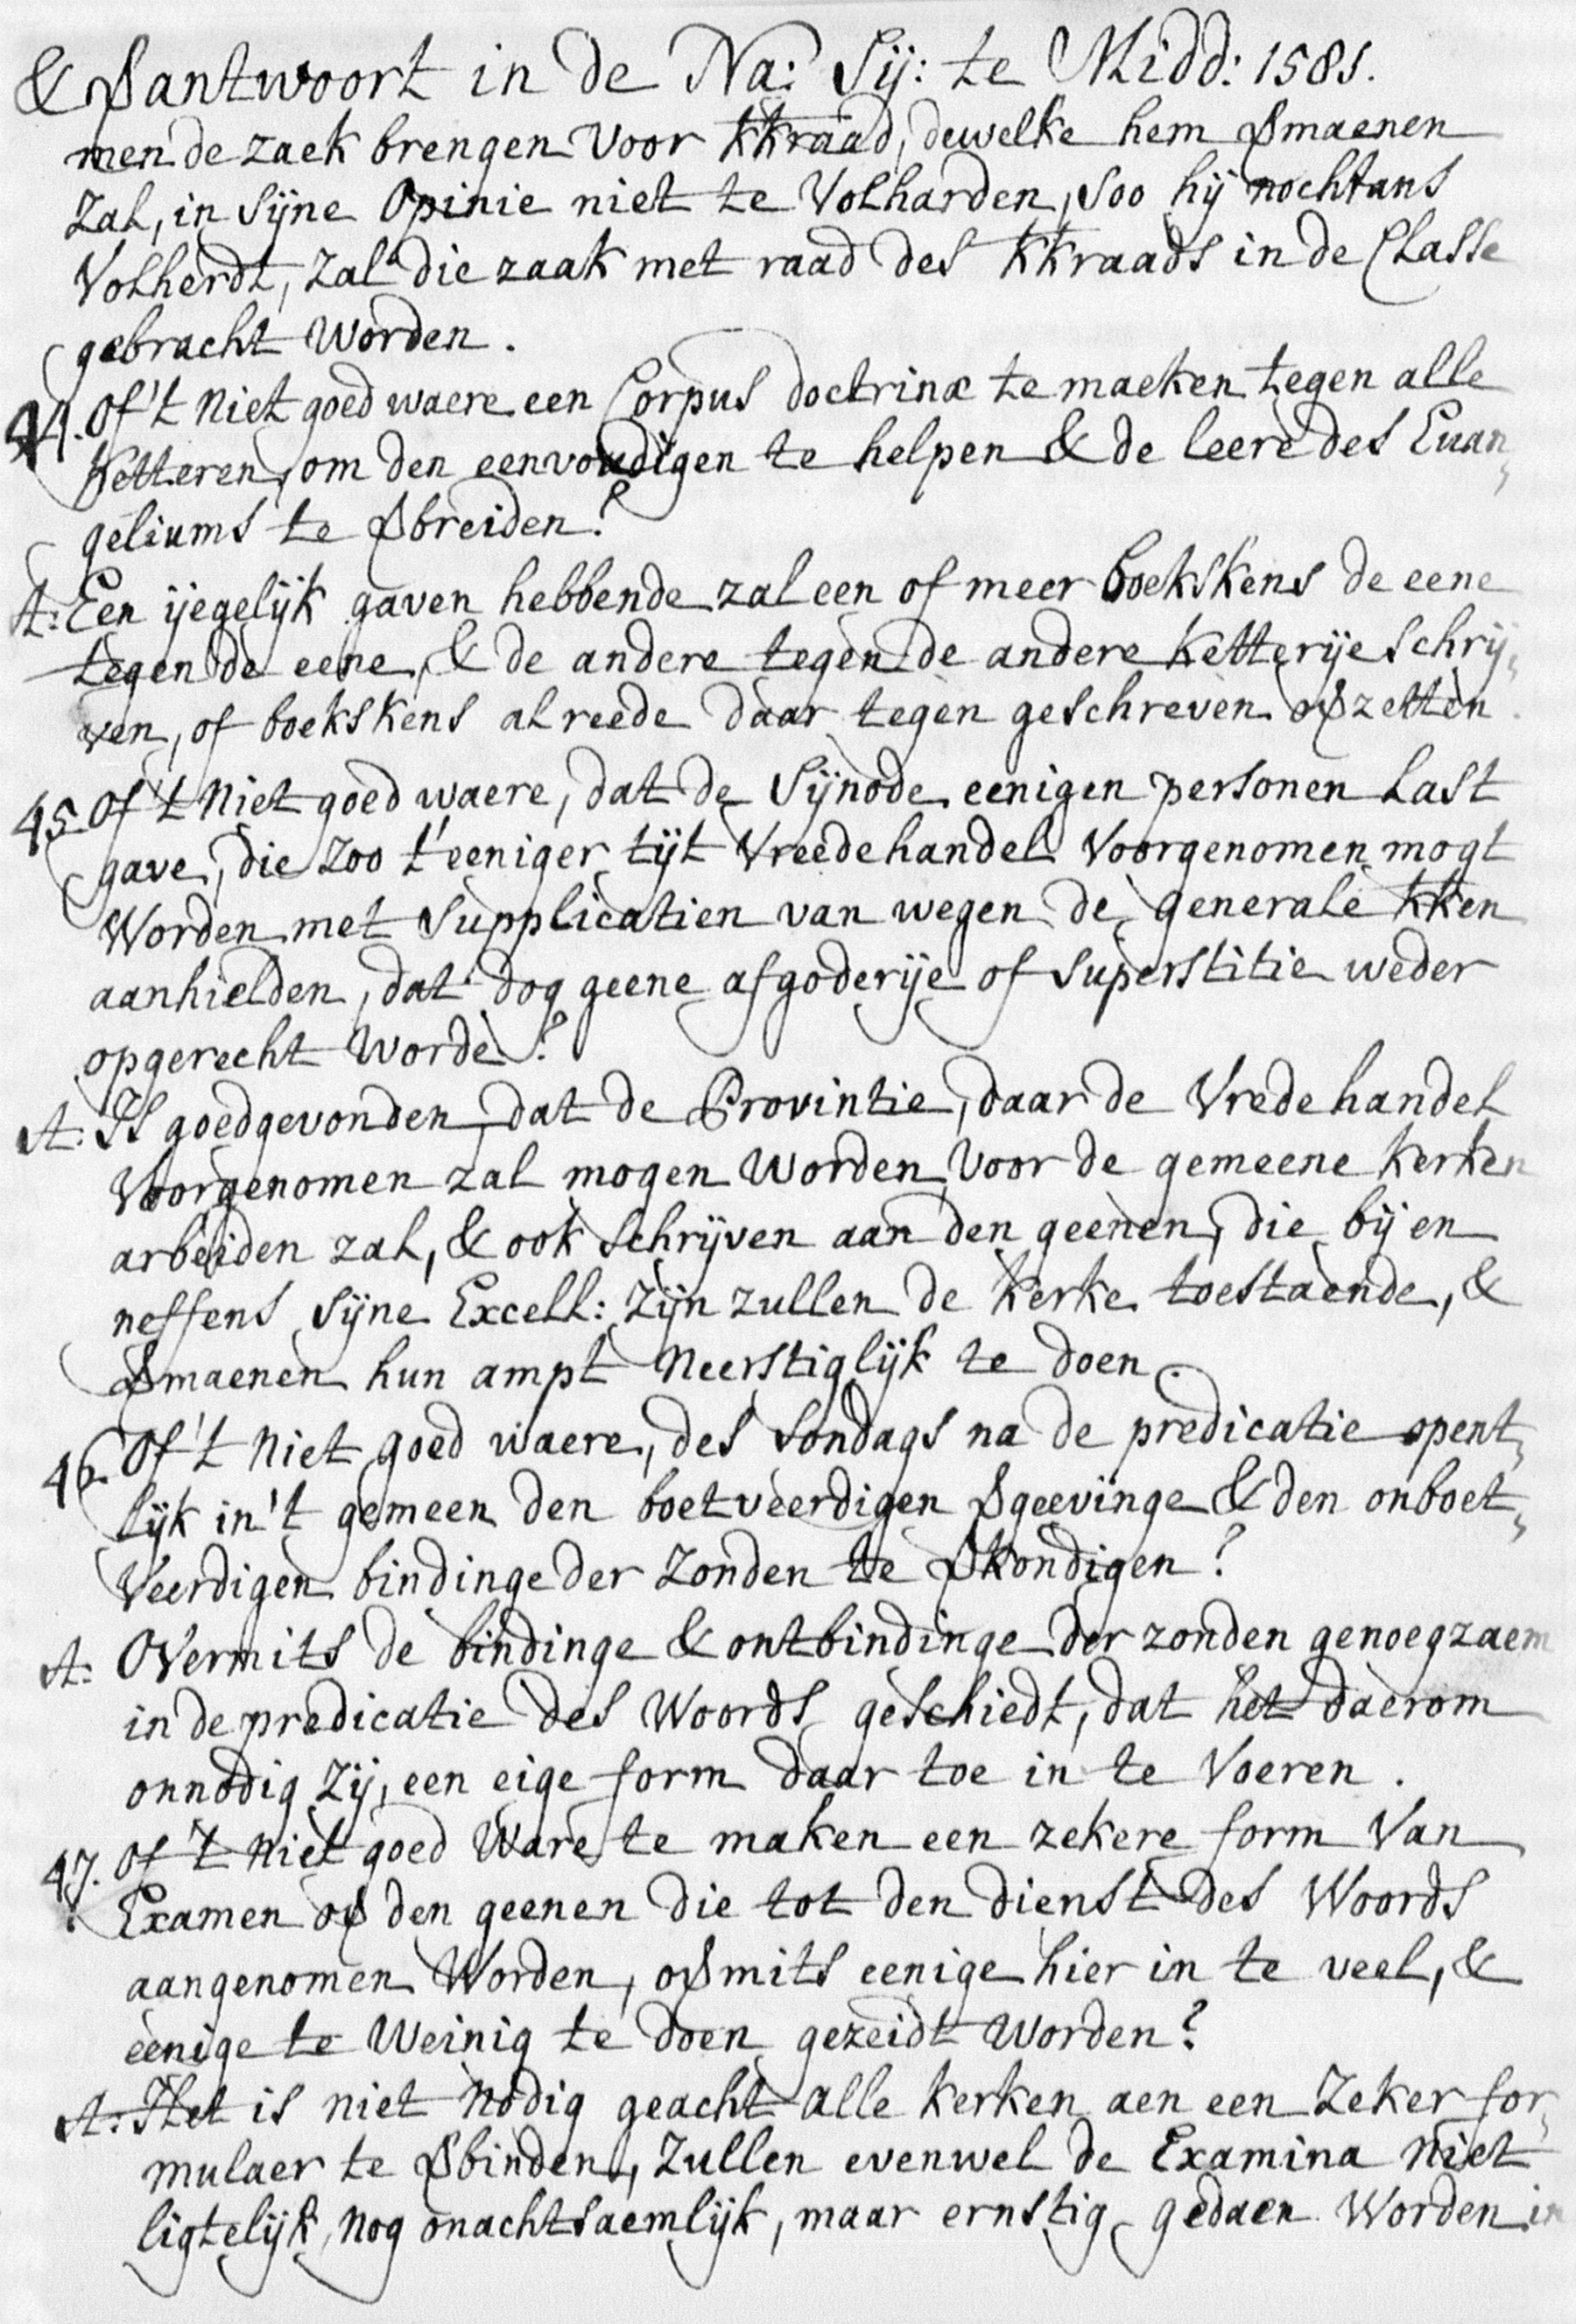 & Ꟗantwoort in de Na: Sij: te Midd: 1581.
men de zaek brengen voor kkraad, dewelke hem Ꟗmaenen
Zal, in Sijne Opinie niet te Volharden, Soo hij nochtans
Volherdt, zal die zaak met raad des kkraads in de Classe
gebracht Worden.
44. Of 't Niet goed waere een Corpus doctrinæ te maeken tegen alle
Ketteren, om den eenvoudigen te helpen & de leere des Euan„
geliums te Ꟗbreiden?
A: Een ijegelijk gaven hebbende zal een of meer boekskens de eene
tegen de eene, & de andere tegen de andere Ketterije Schrij„
ven, of boekskens al reede daar tegen geschreven oꟖzetten.
45. Of 't Niet goed waere, dat de Sijnode eenigen personen Last
gave, die zoo t'eeniger tijt Vreedehandel Voorgenomen mogt
Worden met Supplicatien van wegen de generale kken
aanhielden, dat dog geene afgoderije of Superstitie weder
opgerecht Worde?
A: Is goedgevonden, dat de Provintie, daar de Vredehandel
Voorgenomen zal mogen Worden, Voor de gemeene Kerken
arbeiden zal, & ook Schrijven aan den geenen, die bij en
neffens Sijne Excell: Zijn zullen de Kerke toestaende, &
Ꟗmaenen hun ampt Neerstiglijk te doen.
46. Of 't Niet goed waere, des Sondags na de predicatie opent„
lijk in 't gemeen den boetveerdigen Ꟗgeevinge & den onboet„
Veerdigen bindinge der Zonden te Ꟗkondigen?
A: OVermits de bindinge & ontbindinge der zonden genoegzaem
in de predicatie des Woords geschiedt, dat het daerom
onnodig Zij, een eige form daar toe in te Voeren.
47. Of 't Niet goed Ware te maken een zekere form Van
Examen oꟖ den geenen die tot den dienst des Woords
aangenomen Worden, oꟖmits eenige hier in te veel, &
eenige te Weinig te doen gezeidt Worden?
A: Het is niet Nodig geacht alle Kerken aen een Zeker for„
mulaer te Ꟗbinden, Zullen evenwel de Examina Niet
ligtelijk, Nog onachtsaemlijk, maar ernstig gedaen Worden in